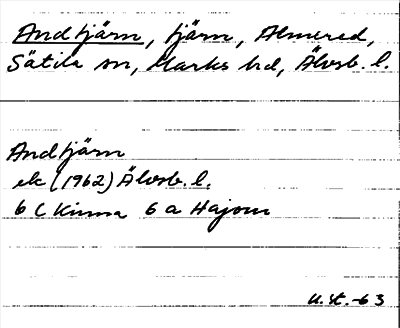 Andtjärn, tjärn, Almered,
Sätila sn, Marks hd, Älvsb. l.
Andtjärn
ek (1962) Älvsb. l.
6 C Kinna 6 a Hajom
U.st.-63